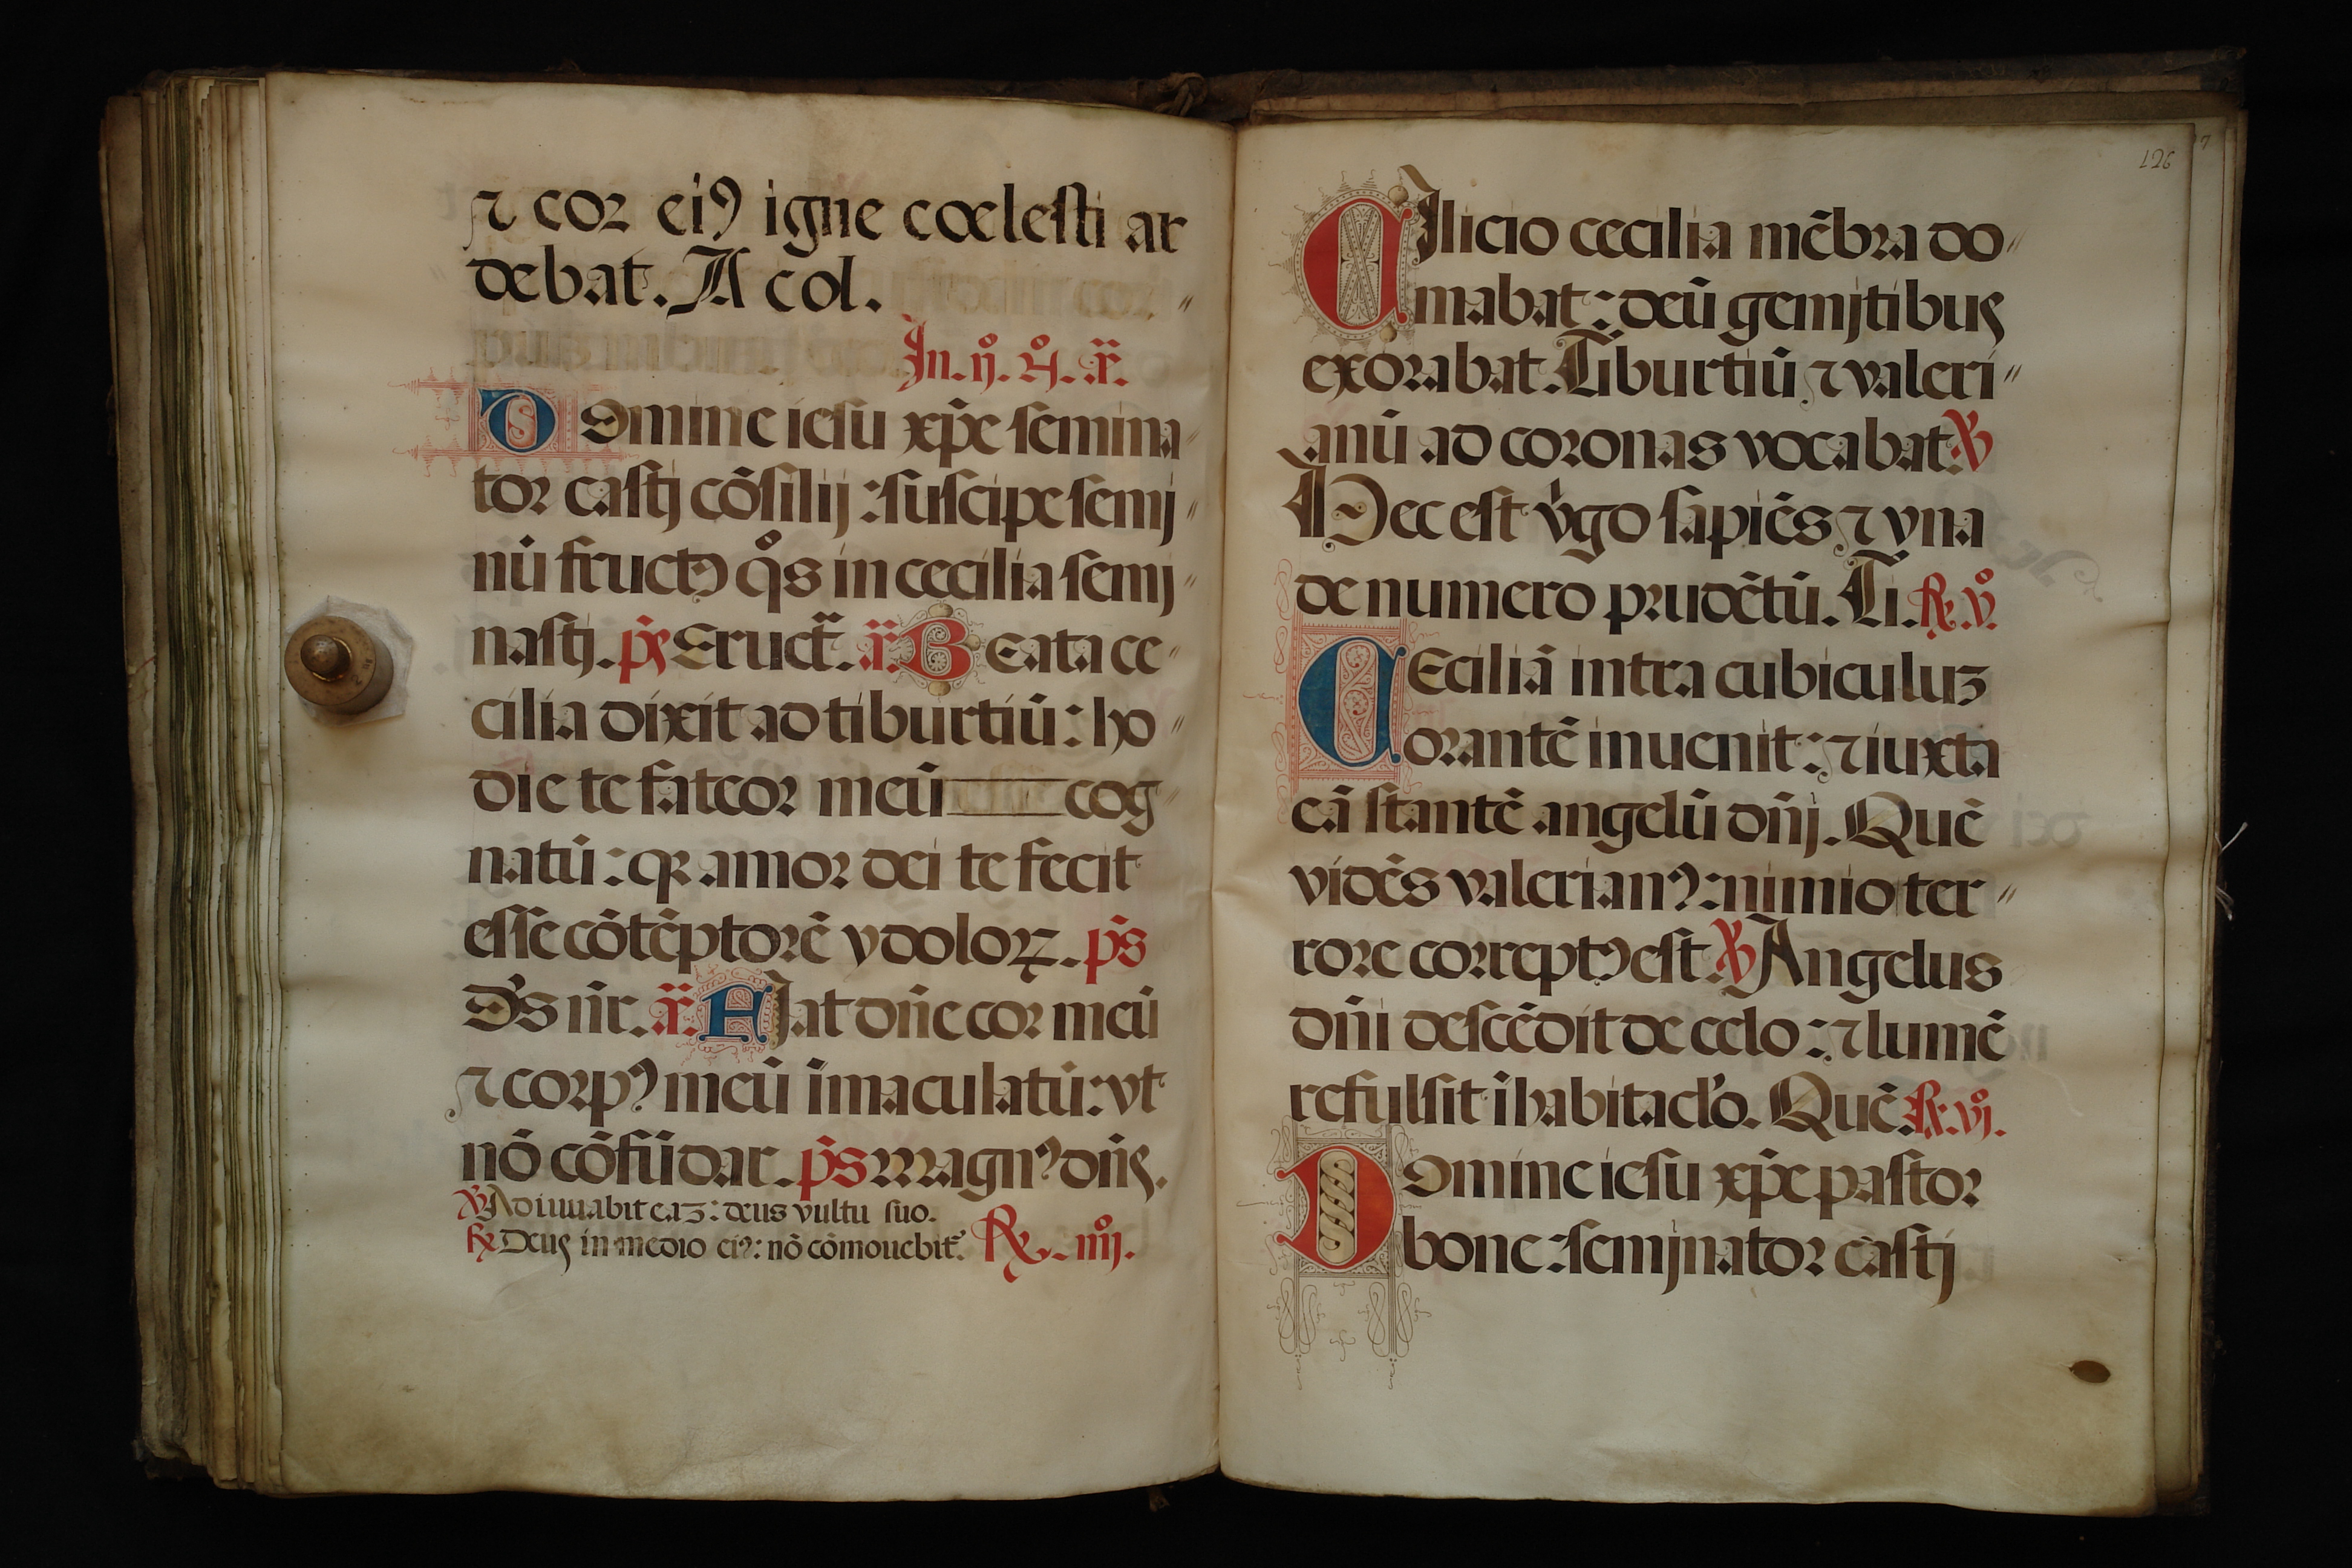 ⁊ cor eiꝰ igne cœlesti ar
debat. A col.
In. ij. º. ã.
Domine iesu xp̃e semina
tor castj cõsilij : suscipe semj
nũ fructꝰ q̊s in cecilia semj
nastj. p̃s Eruct̃. ã. Beata ce
cilia dixit ad tiburtiũ : ho
die te fateor meũ cog
natũ : qꝛ amor dei te fecit
esse cõtẽptorẽ ydoloꝝ. p̃s
Ds̃ nr̃. ã. Fiat dñe cor meũ
⁊ corpꝰ meũ ĩmaculatũ : vt
nõ cõfũdar. p̃s magnꝰ dñs.
℣ Adiuuabit eaꝫ : deus vultu suo.
℟ Deus in medio eiꝰ : nõ cõmouebit̃. ℟. iiij.
126
Cilicio cecilia mẽbra do
mabat : deũ gemjtibus
exorabat. Tiburtiũ ⁊ valeri
anũ ad coronas vocabat ℣
Hec est v̓go sapiẽs ⁊ vna
de numero prudẽtũ. Ti. ℟. v̊.
Ceciliã intra cubiculuꝫ
orantẽ inuenit : ⁊ iuxta
eã stantẽ angelũ dñj. Quẽ
vidẽs valerianꝰ : nimio ter
rore correptꝰ est. ℣ Angelus
dñi descẽdit de celo : ⁊ lumẽ
refulsit ĩ habitaclo̓. Quẽ. ℟. vj̊.
Domine iesu xp̃e pastor
bone : semjnator castj